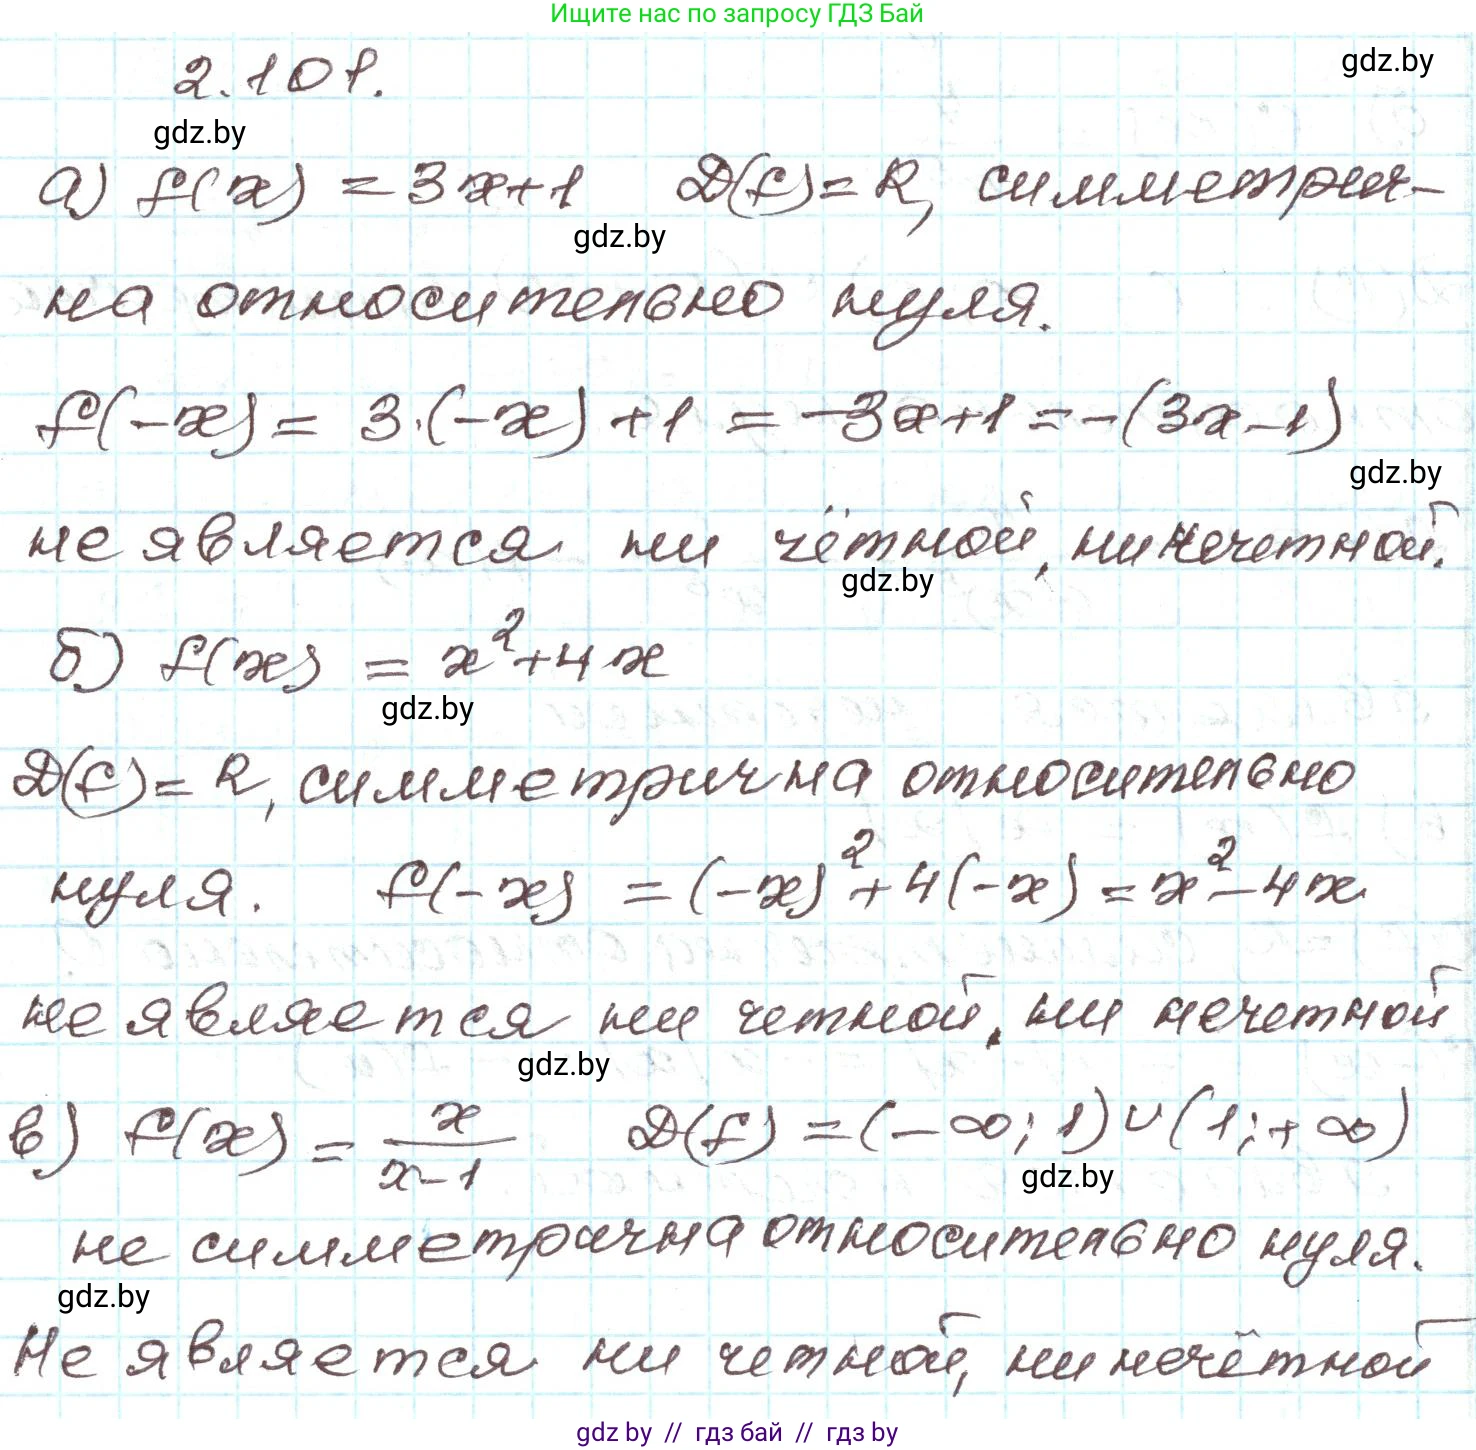 Ищите нас по запросу ГДЗ Бай
2.101.
gdz.by
gdz.by
а) f(x) = 3x+1 D(f)=R, симметрич-
gdz.by
на относительно нуля.
f(-x) = 3·(-x)+1 = -3x+1 = -(3x-1)
gdz.by
не является ни чётной, ни нечетной.
gdz.by
б) f(x) = x²+4x
gdz.by
D(f)=R, симметрична относительно
нуля. f(-x) = (-x)²+4(-x) = x²-4x
не является ни четной, ни нечетной
gdz.by
в) f(x) = x/(x-1) D(f) = (-∞; 1)∪(1; +∞)
gdz.by
не симметрична относительно нуля.
gdz.by
Не является ни четной, ни нечётной
gdz by // гдз бай // гдз by